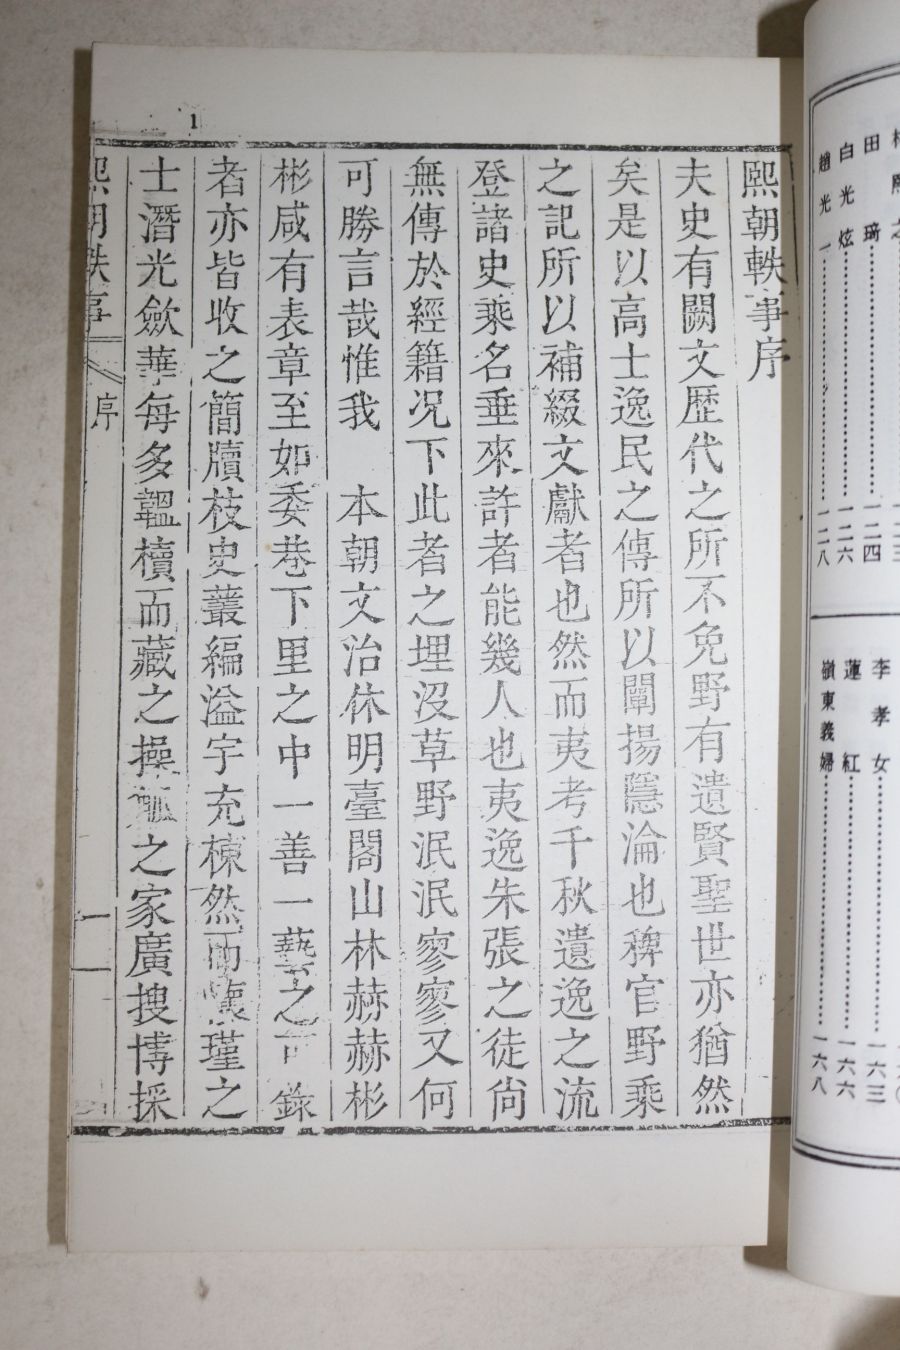 1
熙朝軼事序
夫史有闕文歷代之所不免野有遺賢聖世亦猶然
矣是以高士逸民之傳所以闡揚隱淪也稗官野乘
之記所以補綴文獻者也然而夷考千秋遺逸之流
登諸史乘名垂來許者能幾人也夷逸朱張之徒尙
無傳於經籍况下此者之埋沒草野泯泯寥寥又何
可勝言哉惟我　本朝文治休明臺閣山林赫赫彬
彬咸有表章至如委巷下里之中一善一藝之可錄
者亦皆收之簡牘枝史叢編溢宇充棟然而懷瑾之
士潛光歛華每多韞櫝而藏之操觚之家廣搜博採
熙朝軼事
序
一
田琦……一二四
白光炫……一二六
趙光一……一二八
李孝女……一六三
蓮紅……一六六
嶺東義婦……一六八